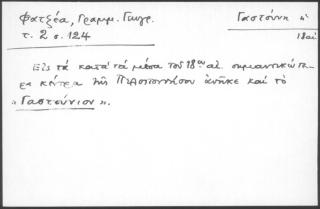 Φατζέα, Γραμμ. Γεωγρ. Γαστούνη
τ. 2 σ. 124 18 αἰ
Εἰς τὰ κατὰ τὰ μέσα τοῦ 18ου αἰ. σημαντικώτε-
ρα κέντρα τῆς Πελοποννήσου ἀνῆκε καὶ τὸ
«Γαστούνιον».